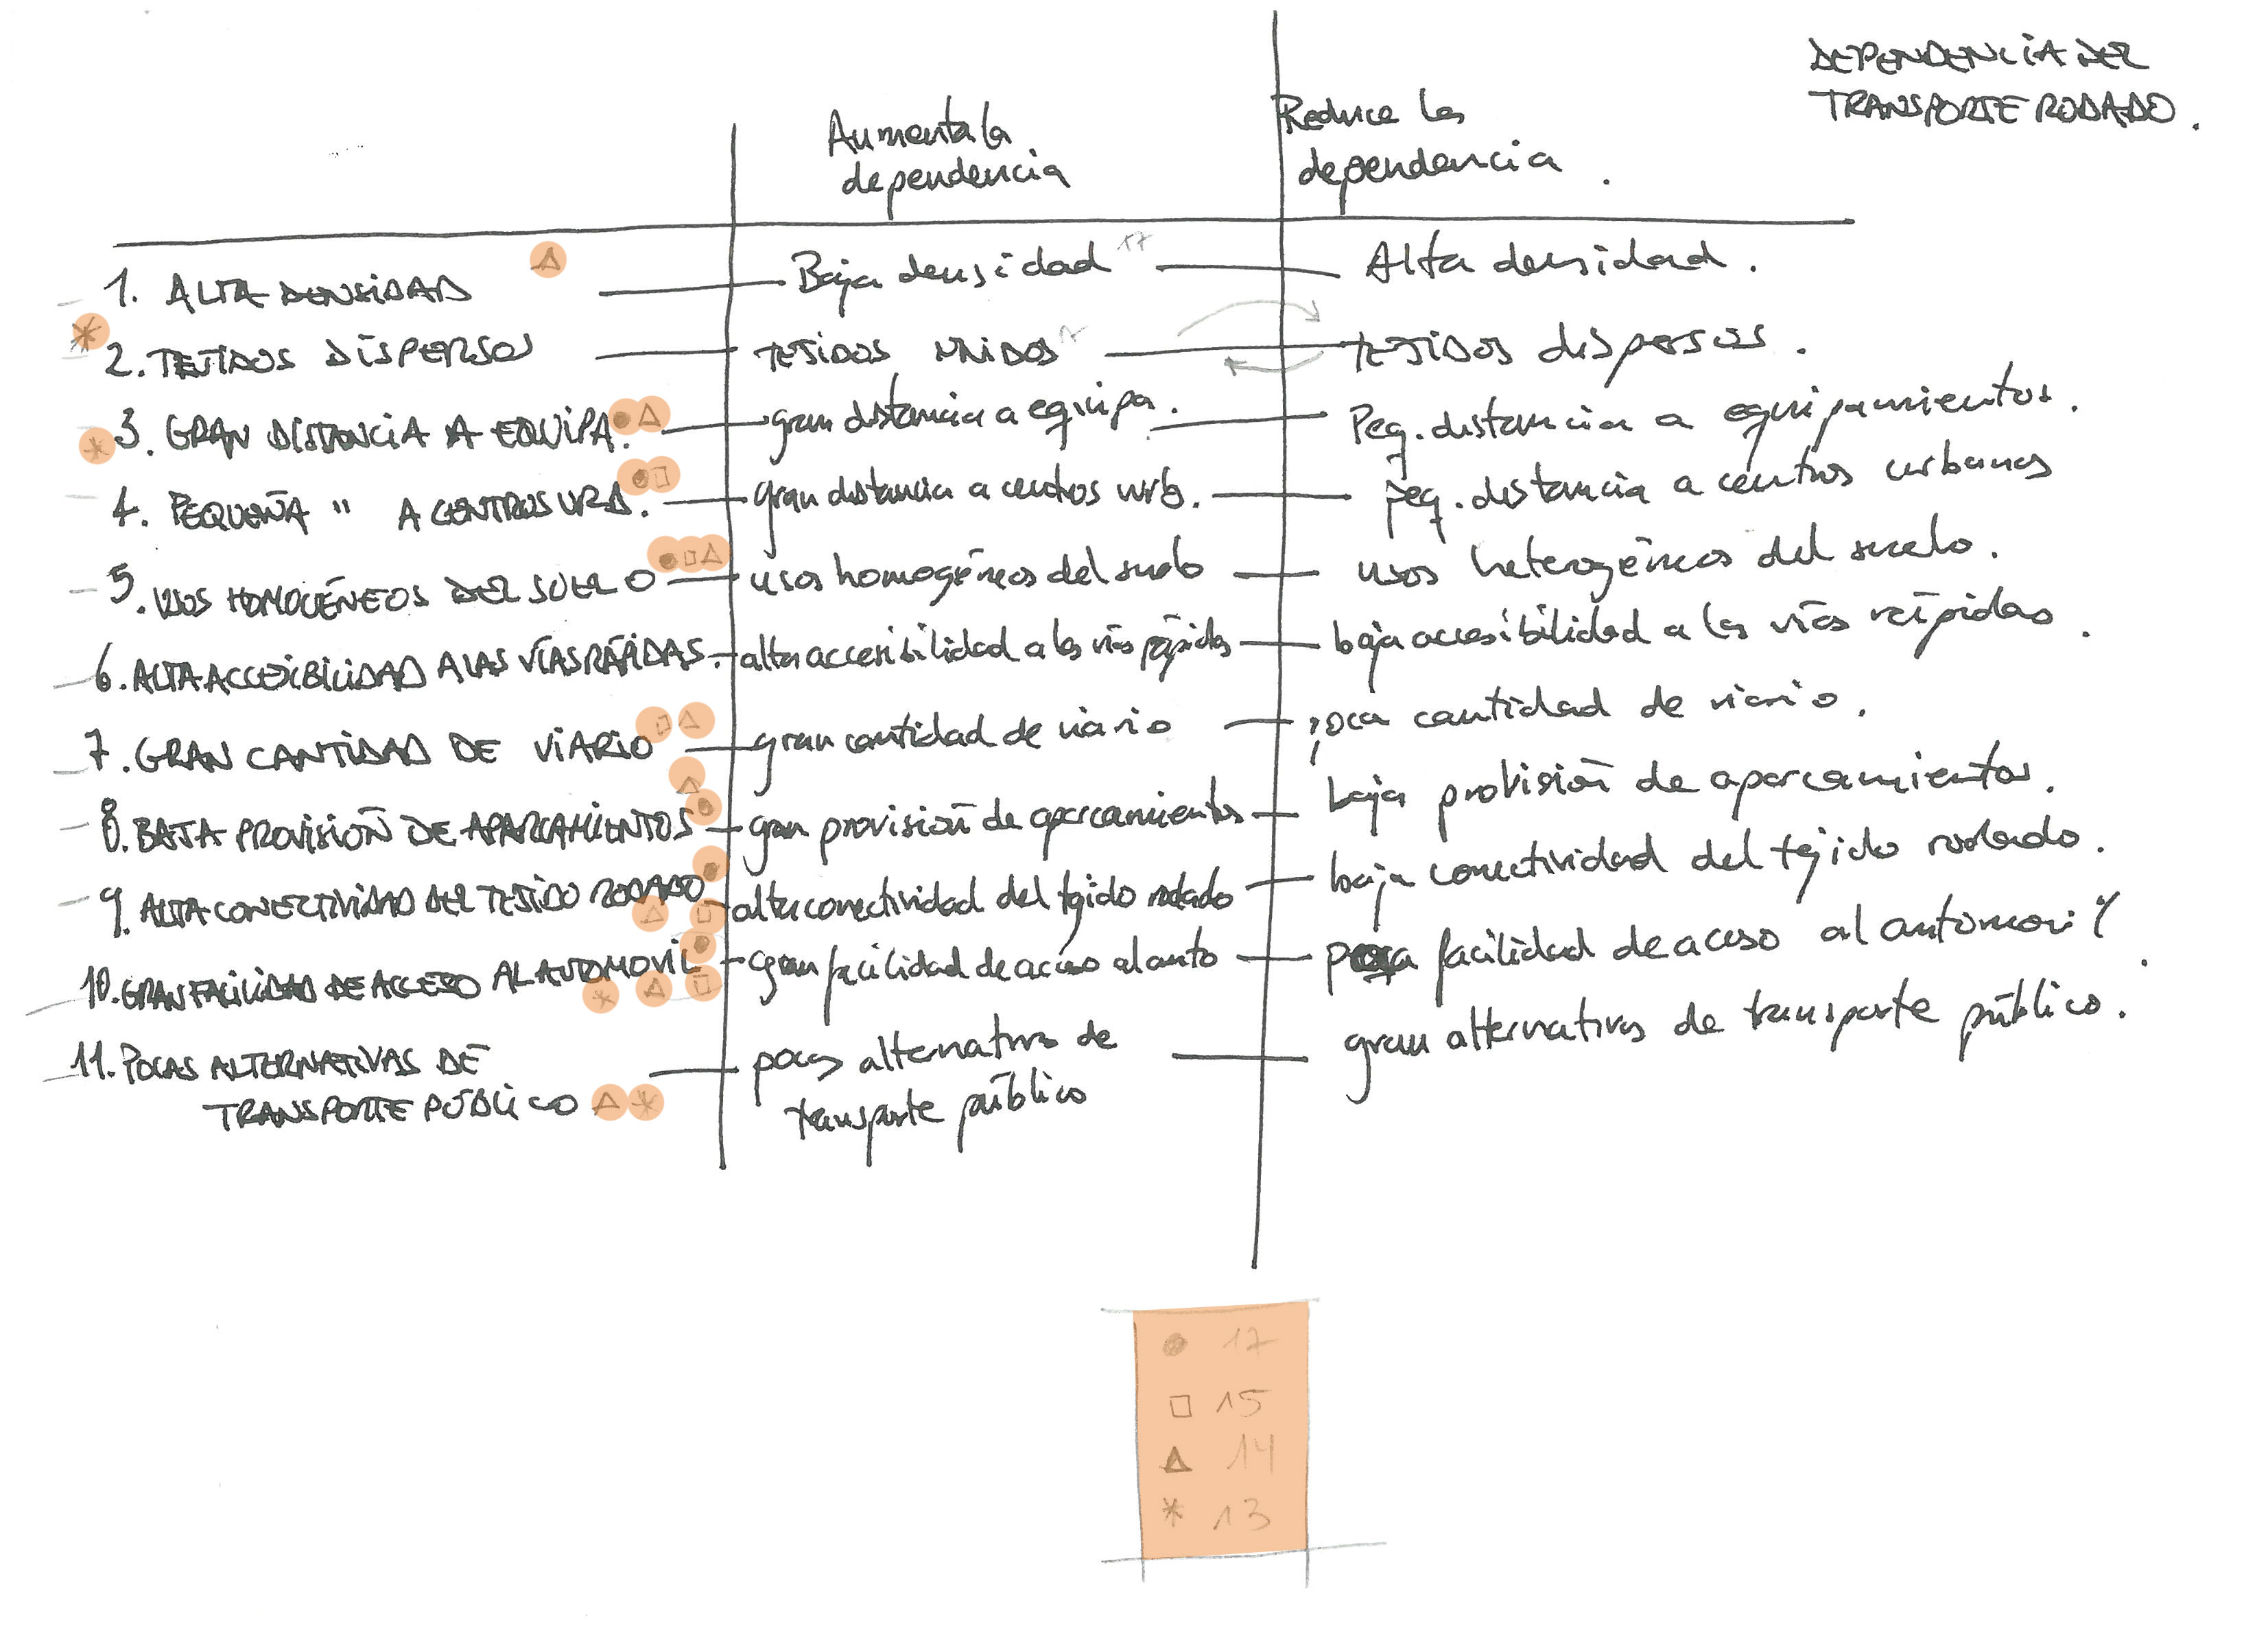 DEPENDENCIA DEL
TRANSPORTE RODADO.
Aumenta la
dependencia
Reduce la
dependencia.
1. ALTA DENSIDAD
Baja densidad 17
Alta densidad.
2. TEJIDOS DISPERSOS
TEJIDOS UNIDOS
TEJIDOS dispersos.
3. GRAN DISTANCIA A EQUIPA.
gran distancia a equipa.
Peq. distancia a equipamientos.
4. PEQUEÑA " A CENTROS URB.
gran distancia a centros urb.
peq. distancia a centros urbanos
5. USOS HOMOGÉNEOS DEL SUELO
usos homogéneos del suelo
usos heterogéneos del suelo.
6. ALTA ACCESIBILIDAD A LAS VÍAS RÁPIDAS.
alta accesibilidad a las vías rápidas
baja accesibilidad a las vías rápidas.
7. GRAN CANTIDAD DE VIARIO
gran cantidad de viario
poca cantidad de viario.
8. BAJA PROVISIÓN DE APARCAMIENTOS
gran provisión de aparcamientos
baja provisión de aparcamientos.
9. ALTA CONECTIVIDAD DEL TEJIDO RODADO
alta conectividad del tejido rodado
baja conectividad del tejido rodado.
10. GRAN FACILIDAD DE ACCESO AL AUTOMOVIL
gran facilidad de acceso al auto
poca facilidad de acceso al automovil.
11. POCAS ALTERNATIVAS DE
TRANSPORTE PÚBLICO
pocas alternativas de
transporte público
gran alternativas de transporte público.
17
15
14
13